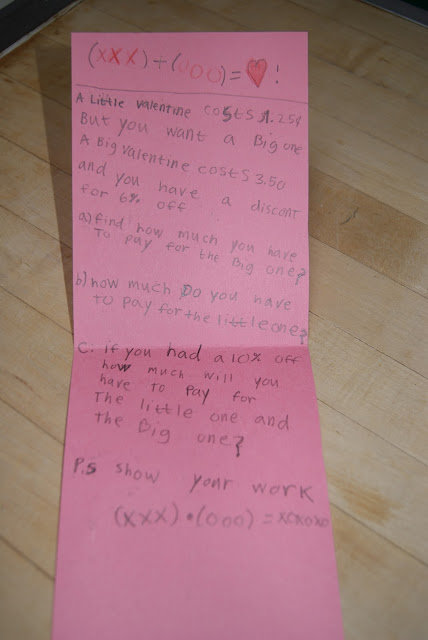 (XXX)÷(OOO)=♥!
A Little valentine costs 1.25¢
But you want a Big one
A Big valentine costs 3.50
and you have a discont
for 6% off
a) find how much you have
To pay for the Big one?
b) how much Do you have
to pay for the little one?
C. if you had a 10% off
how much will you
have to pay for
The little one and
the Big one?
P.S show your work
(XXX)•(OOO)=XOXOXO